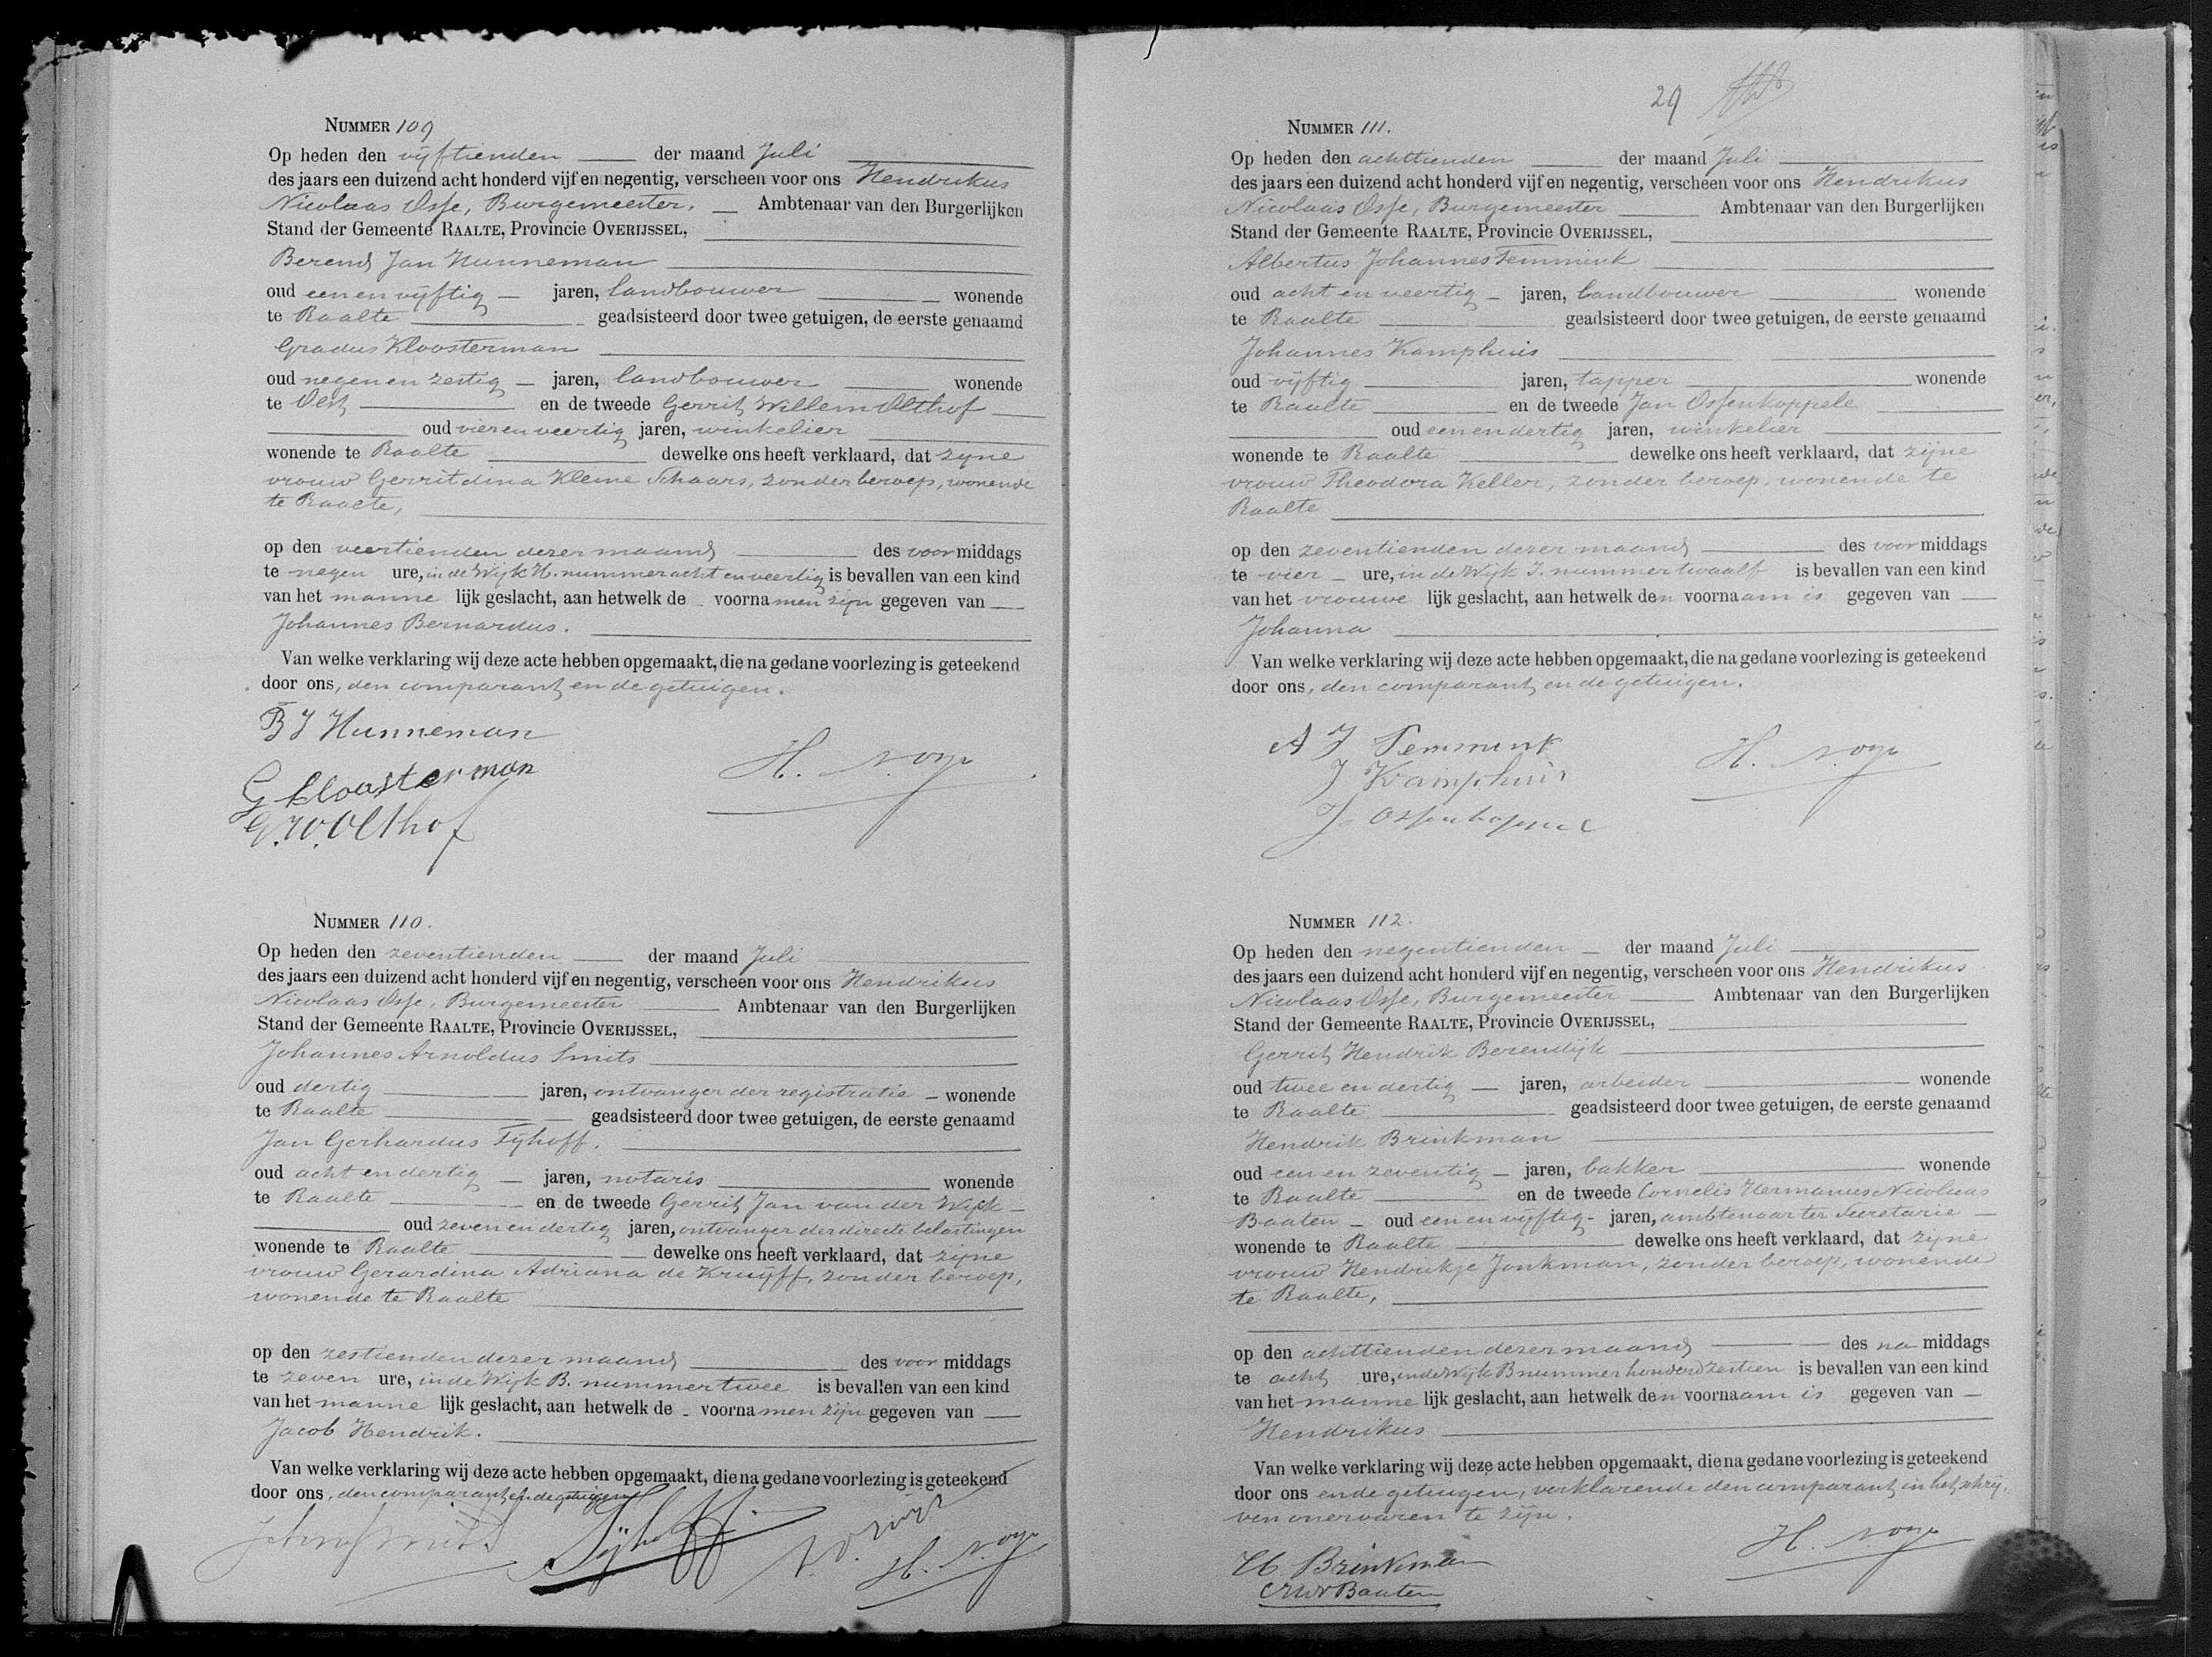 NUMMER 109
Op heden den vijftienden der maand Juli
des jaars een duizend acht honderd vijf en negentig, verscheen voor ons Hendrikus
Nicolaas Osse, Burgemeester, Ambtenaar van den Burgerlijken
Stand der Gemeente RAALTE, Provincie OVERIJSSEL,
Berend Jan Hunneman
oud een en vijftig jaren, landbouwer wonende
te Raalte geadsisteerd door twee getuigen, de eerste genaamd
Gradus Kloosterman
oud negen en zestig jaren, landbouwer wonende
te Olst en de tweede Gerrit Willem Olthof
oud vier en veertig jaren, winkelier
wonende te Raalte dewelke ons heeft verklaard, dat zijne
vrouw Gerritdina Kleine Schaars, zonder beroep, wonende
te Raalte,
op den veertienden dezer maand des voormiddags
te negen ure, in de Wijk H. nummer acht en veertig is bevallen van een kind
van het mannelijk geslacht, aan hetwelk de voornamen zijn gegeven van
Johannes Bernardus.
Van welke verklaring wij deze acte hebben opgemaakt, die na gedane voorlezing is geteekend
door ons, den comparant en de getuigen.
B J Hunneman
G kloosterman
G.W.Olthof
NUMMER 110.
Op heden den zeventienden der maand Juli
des jaars een duizend acht honderd vijf en negentig, verscheen voor ons Hendrikus
Nicolaas Osse, Burgemeester Ambtenaar van den Burgerlijken
Stand der Gemeente RAALTE, Provincie OVERIJSSEL,
Johannes Arnoldus Smits
oud dertig jaren, ontvanger der registratie wonende
te Raalte geadsisteerd door twee getuigen, de eerste genaamd
Jan Gerhardus Fijhoff.
oud acht en dertig jaren, notaris wonende
te Raalte en de tweede Gerrit Jan van der Wijck
oud zeven en dertig jaren, ontvanger der directe belastingen
wonende te Raalte dewelke ons heeft verklaard, dat zijne
vrouw Gerardina Adriana de Kruijff, zonder beroep,
wonende te Raalte
op den zestienden dezer maand des voormiddags
te zeven ure, in de Wijk B. nummer twee is bevallen van een kind
van het mannelijk geslacht, aan hetwelk de voornamen zijn gegeven van
Jacob Hendrik.
Van welke verklaring wij deze acte hebben opgemaakt, die na gedane voorlezing is geteekend
door ons, den comparant en de getuigen
29
NUMMER 111.
Op heden den achttienden der maand Juli
des jaars een duizend acht honderd vijf en negentig, verscheen voor ons Hendrikus
Nicolaas Osse, Burgemeester Ambtenaar van den Burgerlijken
Stand der Gemeente RAALTE, Provincie OVERIJSSEL,
Albertus Johannes Temmink
oud acht en veertig jaren, landbouwer wonende
te Raalte geadsisteerd door twee getuigen, de eerste genaamd
Johannes Kamphuis
oud vijftig jaren, tapper wonende
te Raalte en de tweede Jan Ossenkoppele
oud een en dertig jaren, winkelier
wonende te Raalte dewelke ons heeft verklaard, dat zijne
vrouw Theodora Keller, zonder beroep, wonende te
Raalte
op den zeventienden dezer maand des voormiddags
te vier ure, in de Wijk J. nummer twaalf is bevallen van een kind
van het vrouwelijk geslacht, aan hetwelk den voornaam is gegeven van
Johanna
Van welke verklaring wij deze acte hebben opgemaakt, die na gedane voorlezing is geteekend
door ons, den comparant en de getuigen.
A J Temmink
J Kamphuis
NUMMER 112.
Op heden den negentienden der maand Juli
des jaars een duizend acht honderd vijf en negentig, verscheen voor ons Hendrikus
Nicolaas Osse, Burgemeester Ambtenaar van den Burgerlijken
Stand der Gemeente RAALTE, Provincie OVERIJSSEL,
Gerrit Hendrik Berendijk
oud twee en dertig jaren, arbeider wonende
te Raalte geadsisteerd door twee getuigen, de eerste genaamd
Hendrik Brinkman
oud een en zeventig jaren, bakker wonende
te Raalte en de tweede Cornelis Hermanus Nicolaas
Baaten oud een en vijftig jaren, ambtenaar ter Secretarie
wonende te Raalte dewelke ons heeft verklaard, dat zijne
vrouw Hendrikje Jonkman, zonder beroep, wonende
te Raalte,
op den achttienden dezer maand des namiddags
te acht ure, in de Wijk B nummer honderd zestien is bevallen van een kind
van het mannelijk geslacht, aan hetwelk den voornaam is gegeven van
Hendrikus
Van welke verklaring wij deze acte hebben opgemaakt, die na gedane voorlezing is geteekend
door ons en de getuigen, verklarende den comparant in het schrij-
ven onervaren te zijn.
H Brinkman